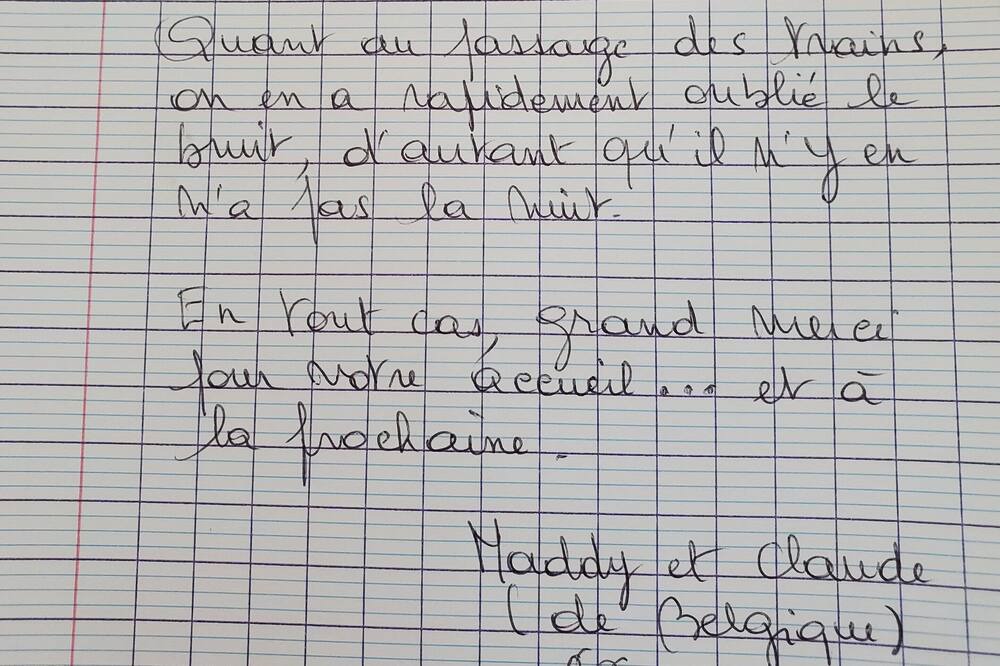 Quant au passage des trains,
on en a rapidement oublié le
bruit, d'autant qu'il n'y en
n'a pas la nuit.
En tout cas, grand merci
pour votre accueil... et à
la prochaine.
Maddy et Claude
(de Belgique)